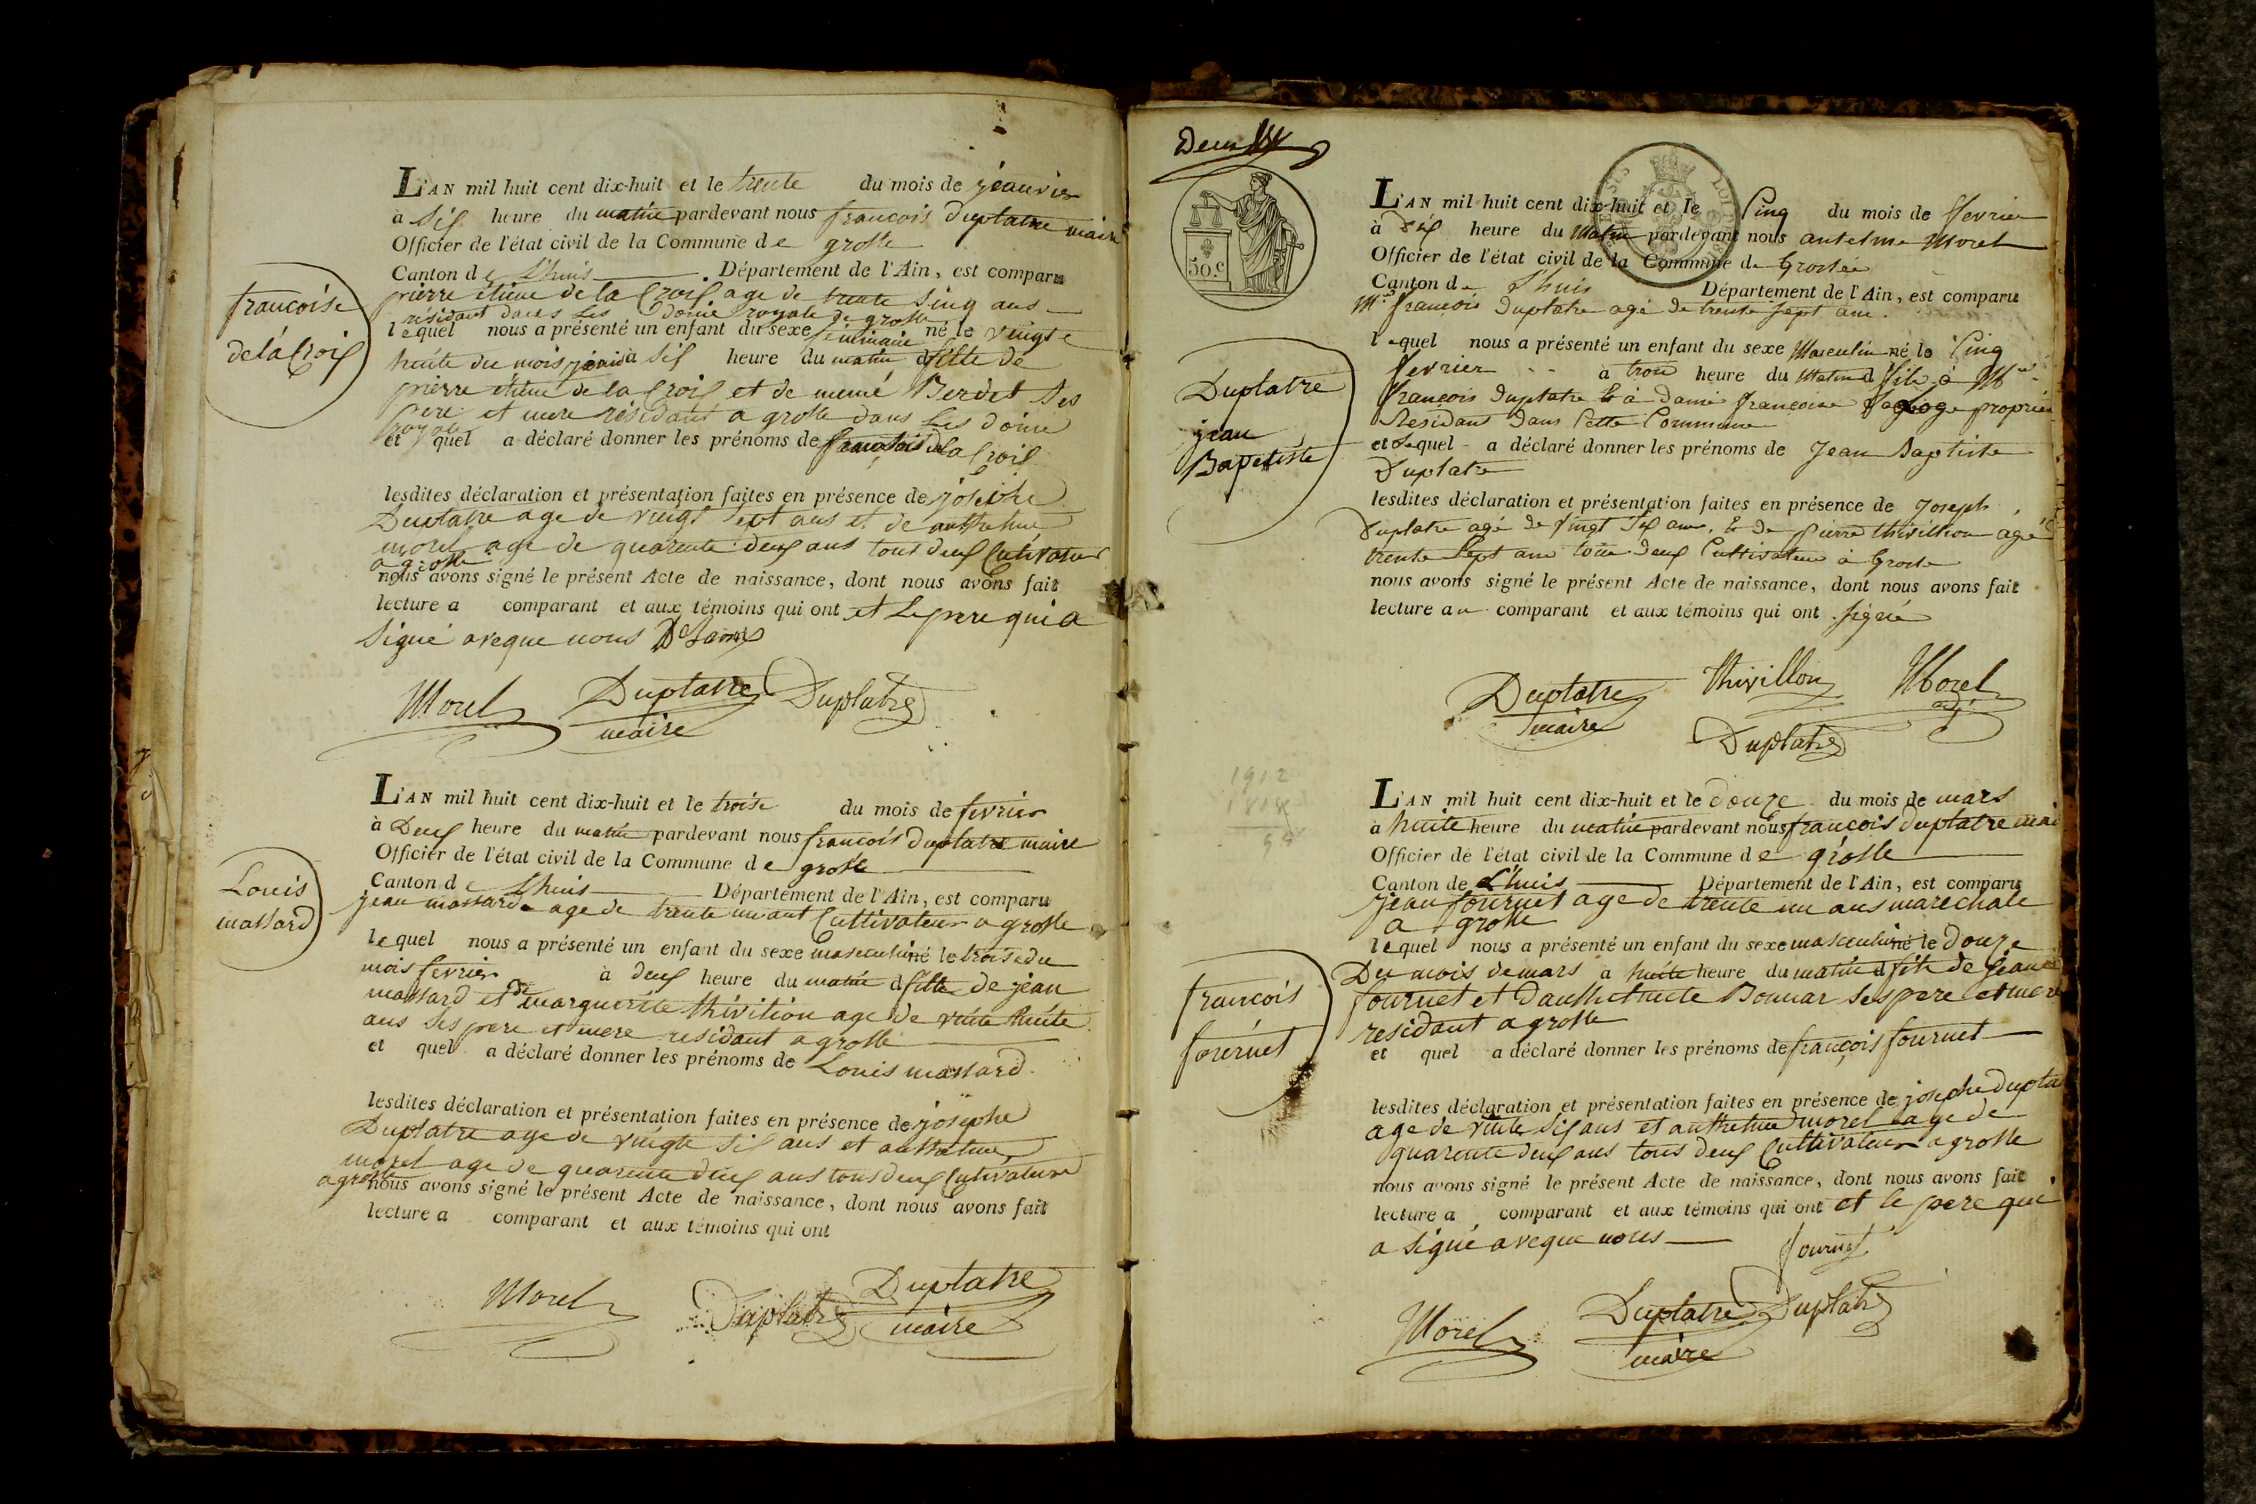 L'AN mil huit cent dix-huit et le trente du mois de jeanvier
à Six heure du matin pardevant nous francois Duplatre maire
Officier de l'état civil de la Commune de grolle
Canton de L'huis Département de l'Ain, est comparu
francoise
de la Croix
pierre étiene de la Croix age de trente Sinq ans
résidant dans les Domie royale de grolle
lequel nous a présenté un enfant du sexe feminaie né le vingt
huite du mois à Six heure du matin d fille de
pierre étiene de la Croix et de Berdet Ses
pere et mere résidant a grolle dans Les Domie
royale
et quel a déclaré donner les prénoms de francoise de la Croix
lesdites déclaration et présentation faites en présence de josephe
Duplatre age de vingt Sept ans et de anthelme
morel age de quarente deux ans tous deux Cultivateur
a grolle
nous avons signé le présent Acte de naissance, dont nous avons fait
lecture a comparant et aux témoins qui ont et Le pere qui a
Signé aveque nous
Morel Duplatre Duplatre
maire
L'AN mil huit cent dix-huit et le troise du mois de fevrier
à Deux heure du matin pardevant nous francois Duplatre maire
Officier de l'état civil de la Commune de grolle
Louis
massard
Canton de L'huis Département de l'Ain, est comparu
jean massard age de trente un ant Cultivateur a grolle
lequel nous a présenté un enfant du sexe masculin né le troise du
mois fevrier à deux heure du matin d fille de jean
massard et de marguerite thivition age de vinte huite
ans Ses pere et mere residant a grolle
et quel a déclaré donner les prénoms de Louis massard
lesdites déclaration et présentation faites en présence de josephe
Duplatre age de vingte Six ans et anthelme
morel age de quarente deux ans tous deux Cultivateur
a grolle
nous avons signé le présent Acte de naissance, dont nous avons fait
lecture a comparant et aux témoins qui ont
Morel Duplatre Duplatre
maire
Deux
50 c
L'AN mil huit cent dix-huit et le Cinq du mois de fevrier
à dix heure du Matin pardevant nous antelme Morel
Officier de l'état civil de la Commune de Groslée
Canton de L'huis Département de l'Ain, est comparu
Mr francois Duplatre agé de trente sept ans.
Duplatre
jean
Baptiste
lequel nous a présenté un enfant du sexe Masculin né le Cinq
fevrier à trois heure du Matin d fils à Mr
françois Duplatre & à dame françoise
Residant dans Cette Commune
et Lequel a déclaré donner les prénoms de Jean Baptiste
Duplatre
lesdites déclaration et présentation faites en présence de Joseph
Duplatre agé de Vingt Six ans, & de pierre thivillion agé
trente Sept ans tous deux Cultivateur à Grosle
nous avons signé le présent Acte de naissance, dont nous avons fait
lecture au comparant et aux témoins qui ont signé
Duplatre Thivillon Morel
maire adj
Duplatre
1912
1818
L'AN mil huit cent dix-huit et le Douze du mois de mars
à huite heure du matin pardevant nous francois Duplatre mai
Officier de l'état civil de la Commune de grolle
Canton de L'huis Département de l'Ain, est comparu
jean fournet age de trente un ans marechale
a grolle
francois
fournet
lequel nous a présenté un enfant du sexe masculin né le Douze
Du mois de mars à huite heure du matin d fils de jean
fournet et Danthelmete Bonnar Ses pere et mere
residant a grolle
et quel a déclaré donner les prénoms de françois fournet
lesdites déclaration et présentation faites en présence de josephe Dupla
age de vinte Six ans et anthelme morel age de
quarente deux ans tous deux Cultivateur a grolle
nous avons signé le présent Acte de naissance, dont nous avons fait
lecture a comparant et aux témoins qui ont et le pere qui
a Signé aveque nous
fournet
Morel Duplatre Duplatre
maire